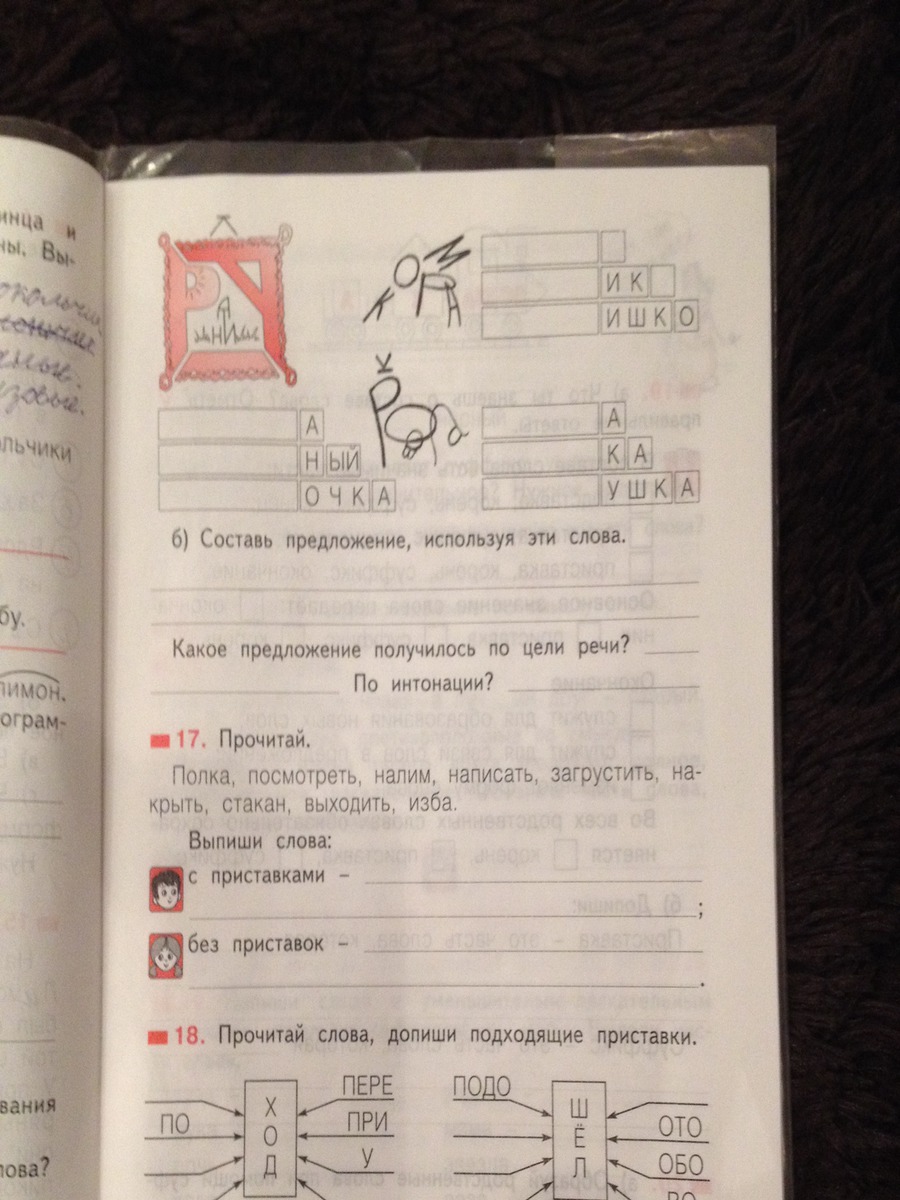 инца и
ны. Вы-
льчики
бу.
лимон.
ограм-
вания
лова?
ИК
ИШКО
А
НЫЙ
ОЧКА
А
КА
УШКА
б) Составь предложение, используя эти слова.
Какое предложение получилось по цели речи?
По интонации?
17. Прочитай.
Полка, посмотреть, налим, написать, загрустить, на-
крыть, стакан, выходить, изба.
Выпиши слова:
с приставками –
;
без приставок –
.
18. Прочитай слова, допиши подходящие приставки.
ПО
ХОД
ПЕРЕ
ПРИ
У
ПОДО
ШЁЛ
ОТО
ОБО